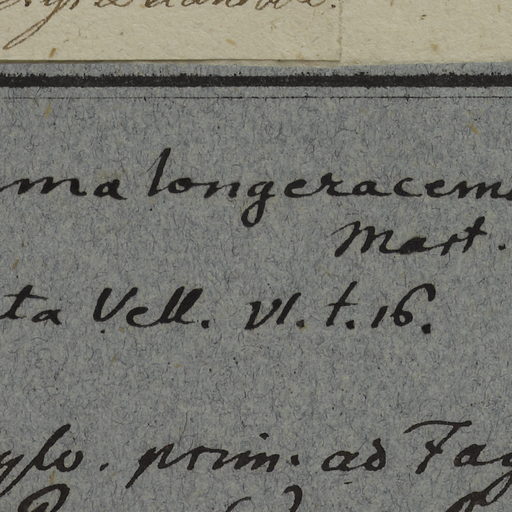 ma longeracemo
Mart.
ta Vell. VI. t. 16.
ylo. prim. ad Fag